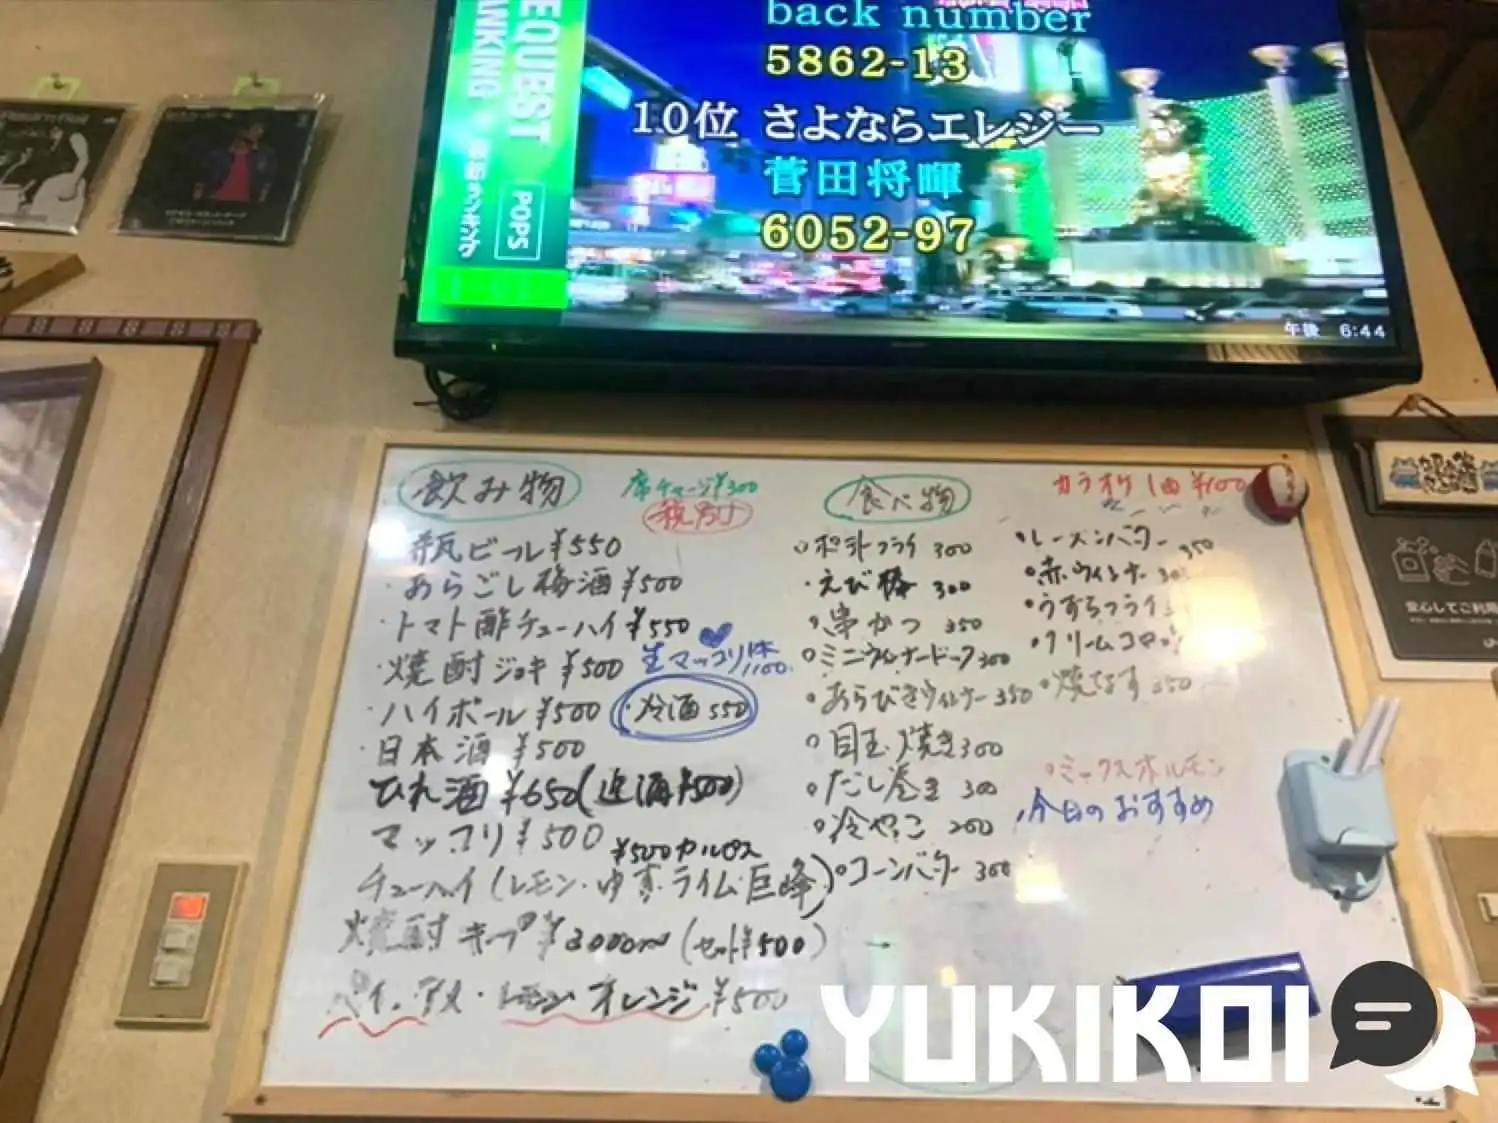 back number
5862-13
10位 さよならエレジー
菅田将暉
6052-97
EQUEST
ANKING
POPS
午後 6:44
飲み物
席チャージ¥300
税別
瓶ビール¥550
あらごし梅酒¥500
トマト酢チューハイ¥550
焼酎ジョッキ¥500
生マッコリ1本
1100.
ハイボール¥500
冷酒550
日本酒 ¥500
ひれ酒¥650(追酒¥500)
マッコリ¥500
¥500カルピス
チューハイ(レモン・ゆず・ライム・巨峰)
焼酎キープ¥3000〜(セット¥500)
レモン オレンジ ¥500
食べ物
カラオケ1曲¥100
ポテトフライ 300
えび棒 300
串かつ 350
ミニウィンナードック300
あらびきウィンナー350
目玉焼き300
だし巻き 300
冷やっこ 200
コーンバター 300
レーズンバター 350
赤ウィンナー
うずらフライ
クリームコロッ
焼なす 350
ミックスホルモン
今日のおすすめ
安心してご利用
YUKIKOI